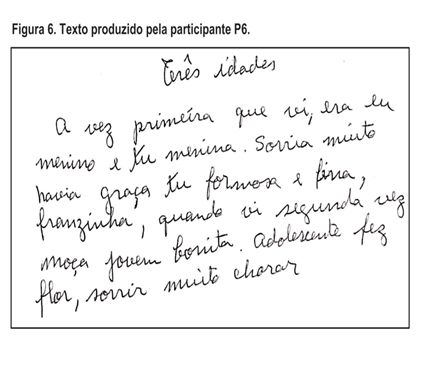 Figura 6. Texto produzido pela participante P6.
Três idades
A vez primeira que vi, era eu
menino e tu menina. Sorria muito
havia graça tu formosa e fina,
franzinha, quando vi segunda vez
moça jovem bonita. Adolescente fez
flor, sorrir muito chorar